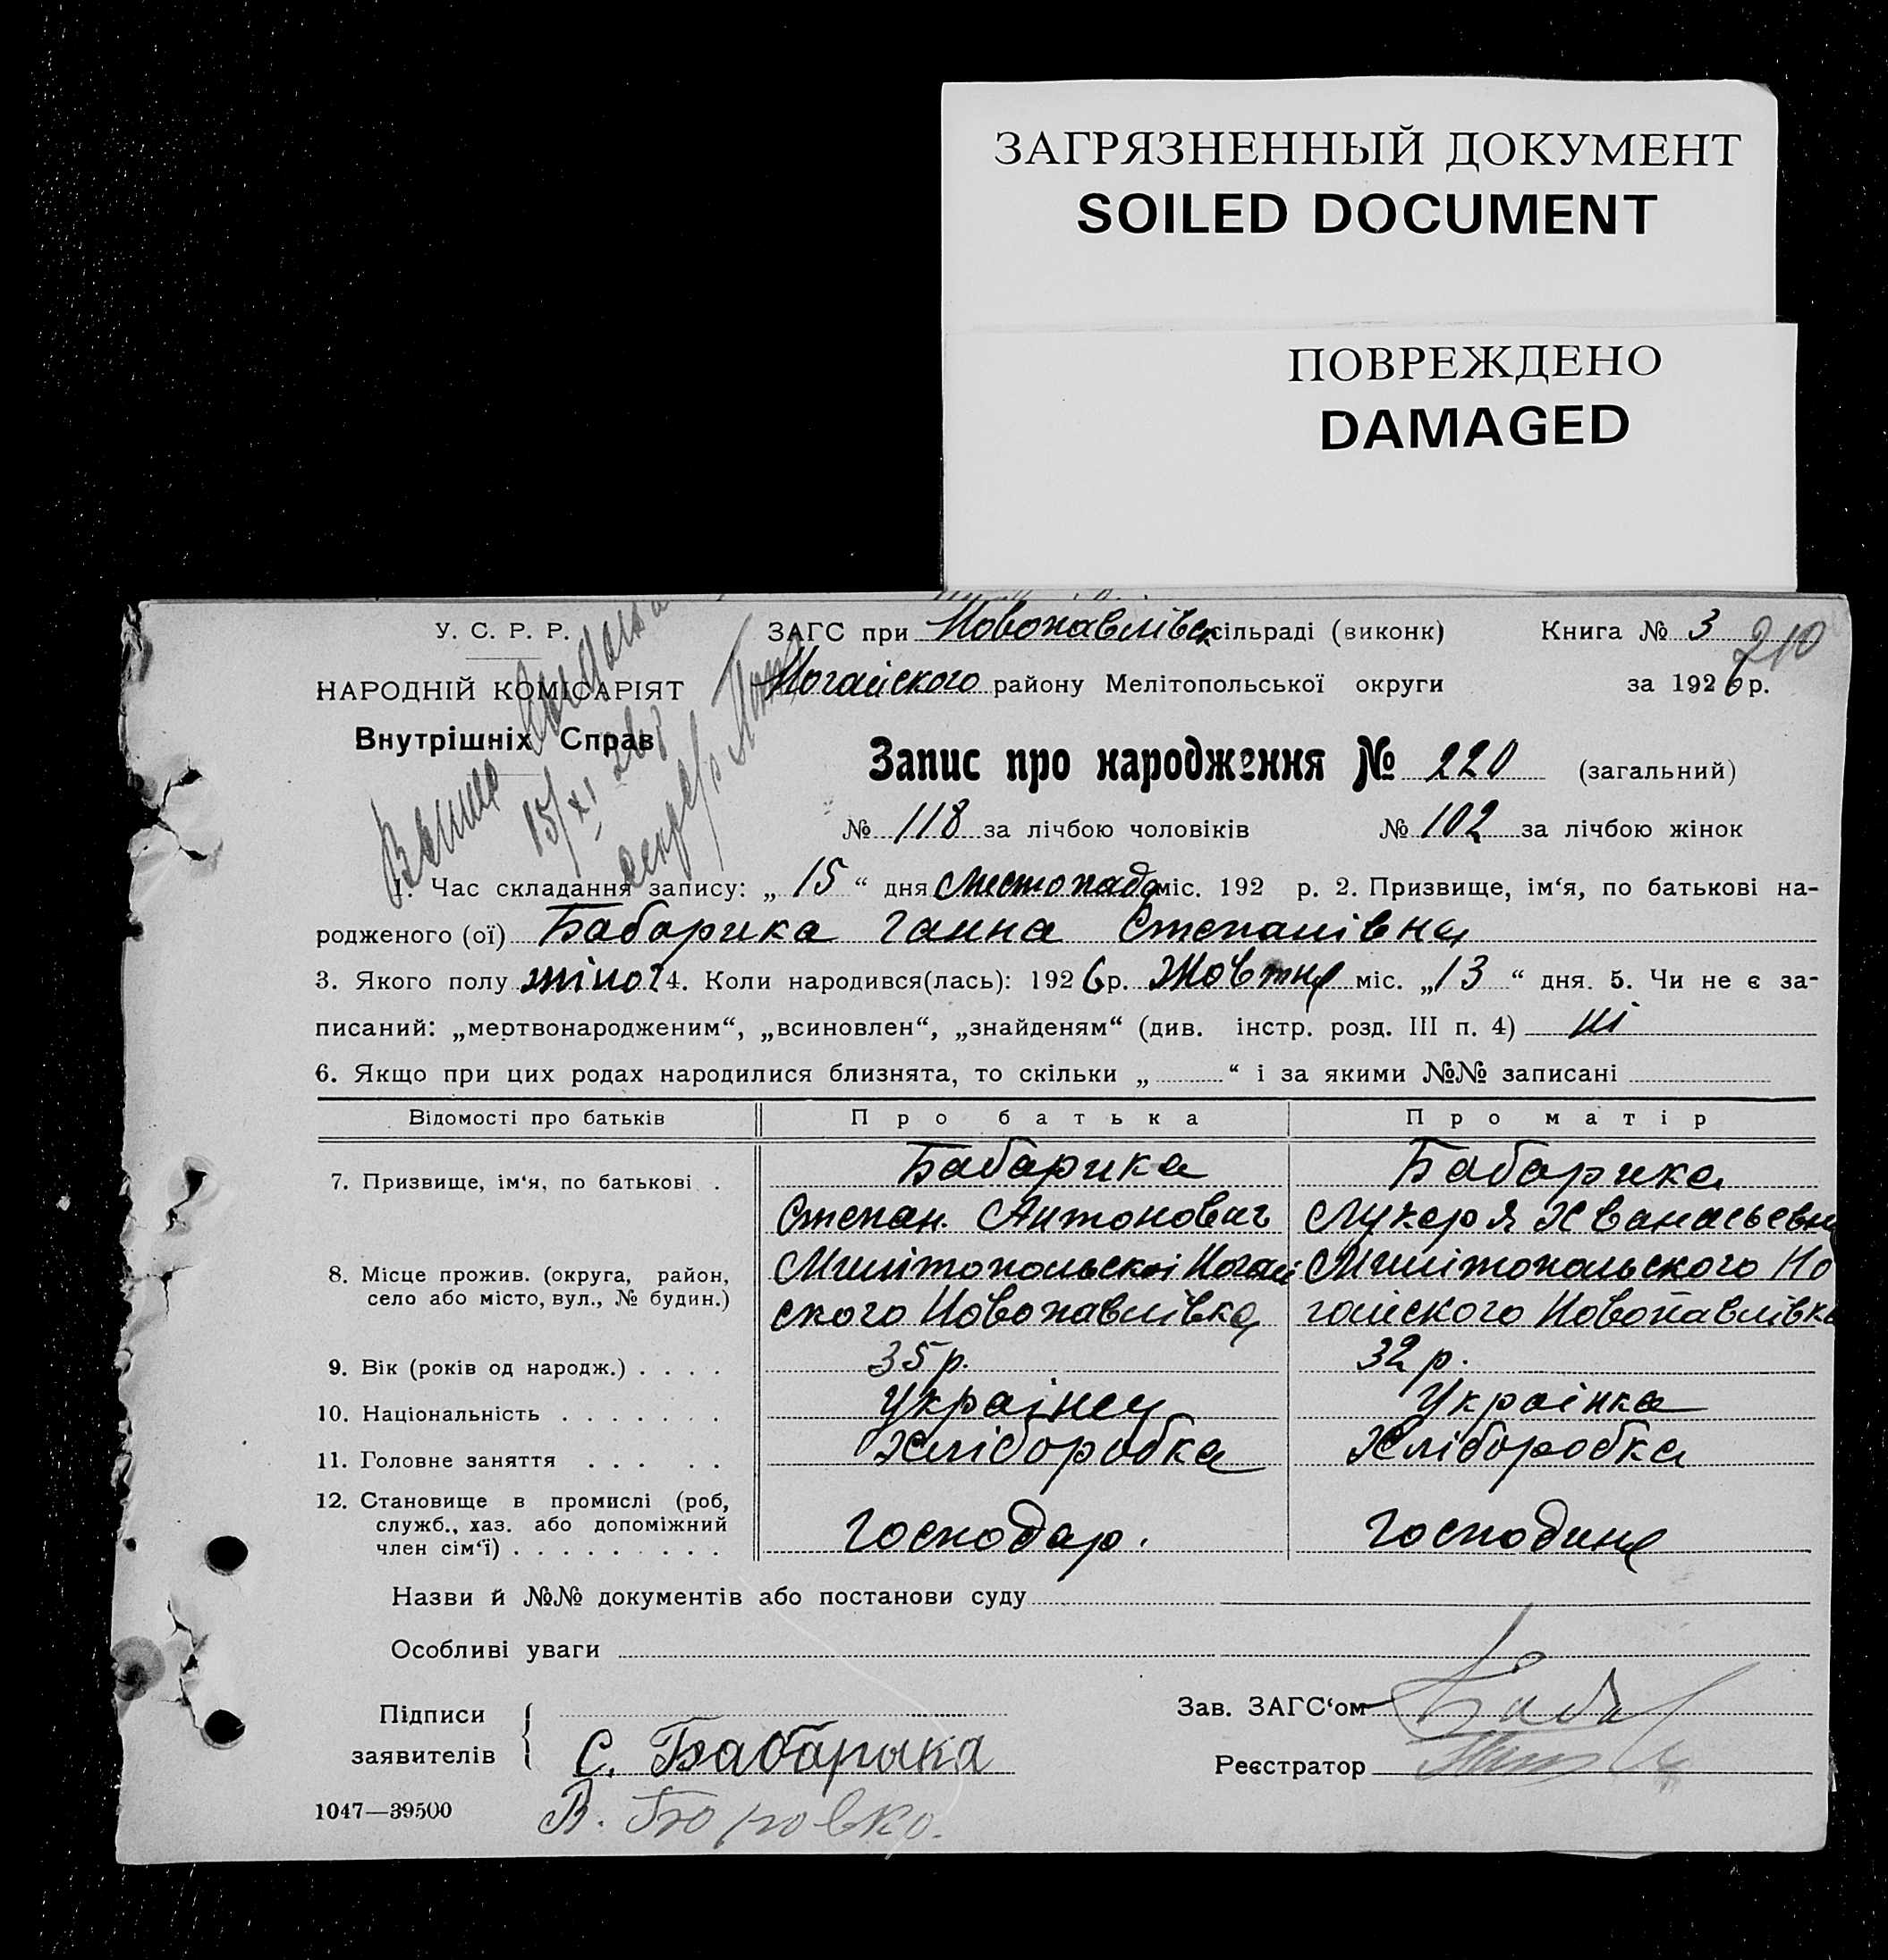 ЗАГРЯЗНЕННЫЙ ДОКУМЕНТ
SOILED DOCUMENT
ПОВРЕЖДЕНО
DAMAGED
У. С. Р. Р.
НАРОДНІЙ КОМІСАРІЯТ
Внутрішніх Справ
ЗАГС при Новопавлівск сільраді (виконк) Книга № 3
210
Ногайского району Мелітопольської округи за 1926 р.
Запис про народження № 220 (загальний)
№ 118 за лічбою чоловіків № 102 за лічбою жінок
15/XI 26 р
1. Час складання запису: „ 15 “ дня листопада міс. 192 р. 2. Призвище, ім‘я, по батькові на-
родженого (ої) Бабарика Ганна Степанівна
3. Якого полу жіноч 4. Коли народився(лась): 1926 р. Жовтня міс. „13 “ дня. 5. Чи не є за-
писаний: „мертвонародженим“, „всиновлен“, „знайденям“ (див. інстр. розд. III п. 4) ні
6. Якщо при цих родах народилися близнята, то скільки „ “ і за якими №№ записані
Відомості про батьків Про батька Про матір
7. Призвище, ім‘я, по батькові . Бабарика Бабарика
Степан Антонович Лукеря Хванасьевна
8. Місце прожив. (округа, район, Милітопольскоі Ногай Милітопольского Но
село або місто, вул., № будин.) ского Новопавлівка гайского Новопавлівка
9. Вік (років од народж.) . . . . 35 р. 32 р.
10. Національність . . . . . . . Украінец Украінка
11. Головне заняття . . . . . Хліборобка Хліборобка
12. Становище в промислі (роб,
служб., хаз. або допоміжний
член сім‘ї) . . . . . . . . . Господар. Господиня
Назви й №№ документів або постанови суду
Особливі уваги
Підписи
заявителів
С. Бабарыка
Зав. ЗАГС‘ом
Реєстратор
1047—39500